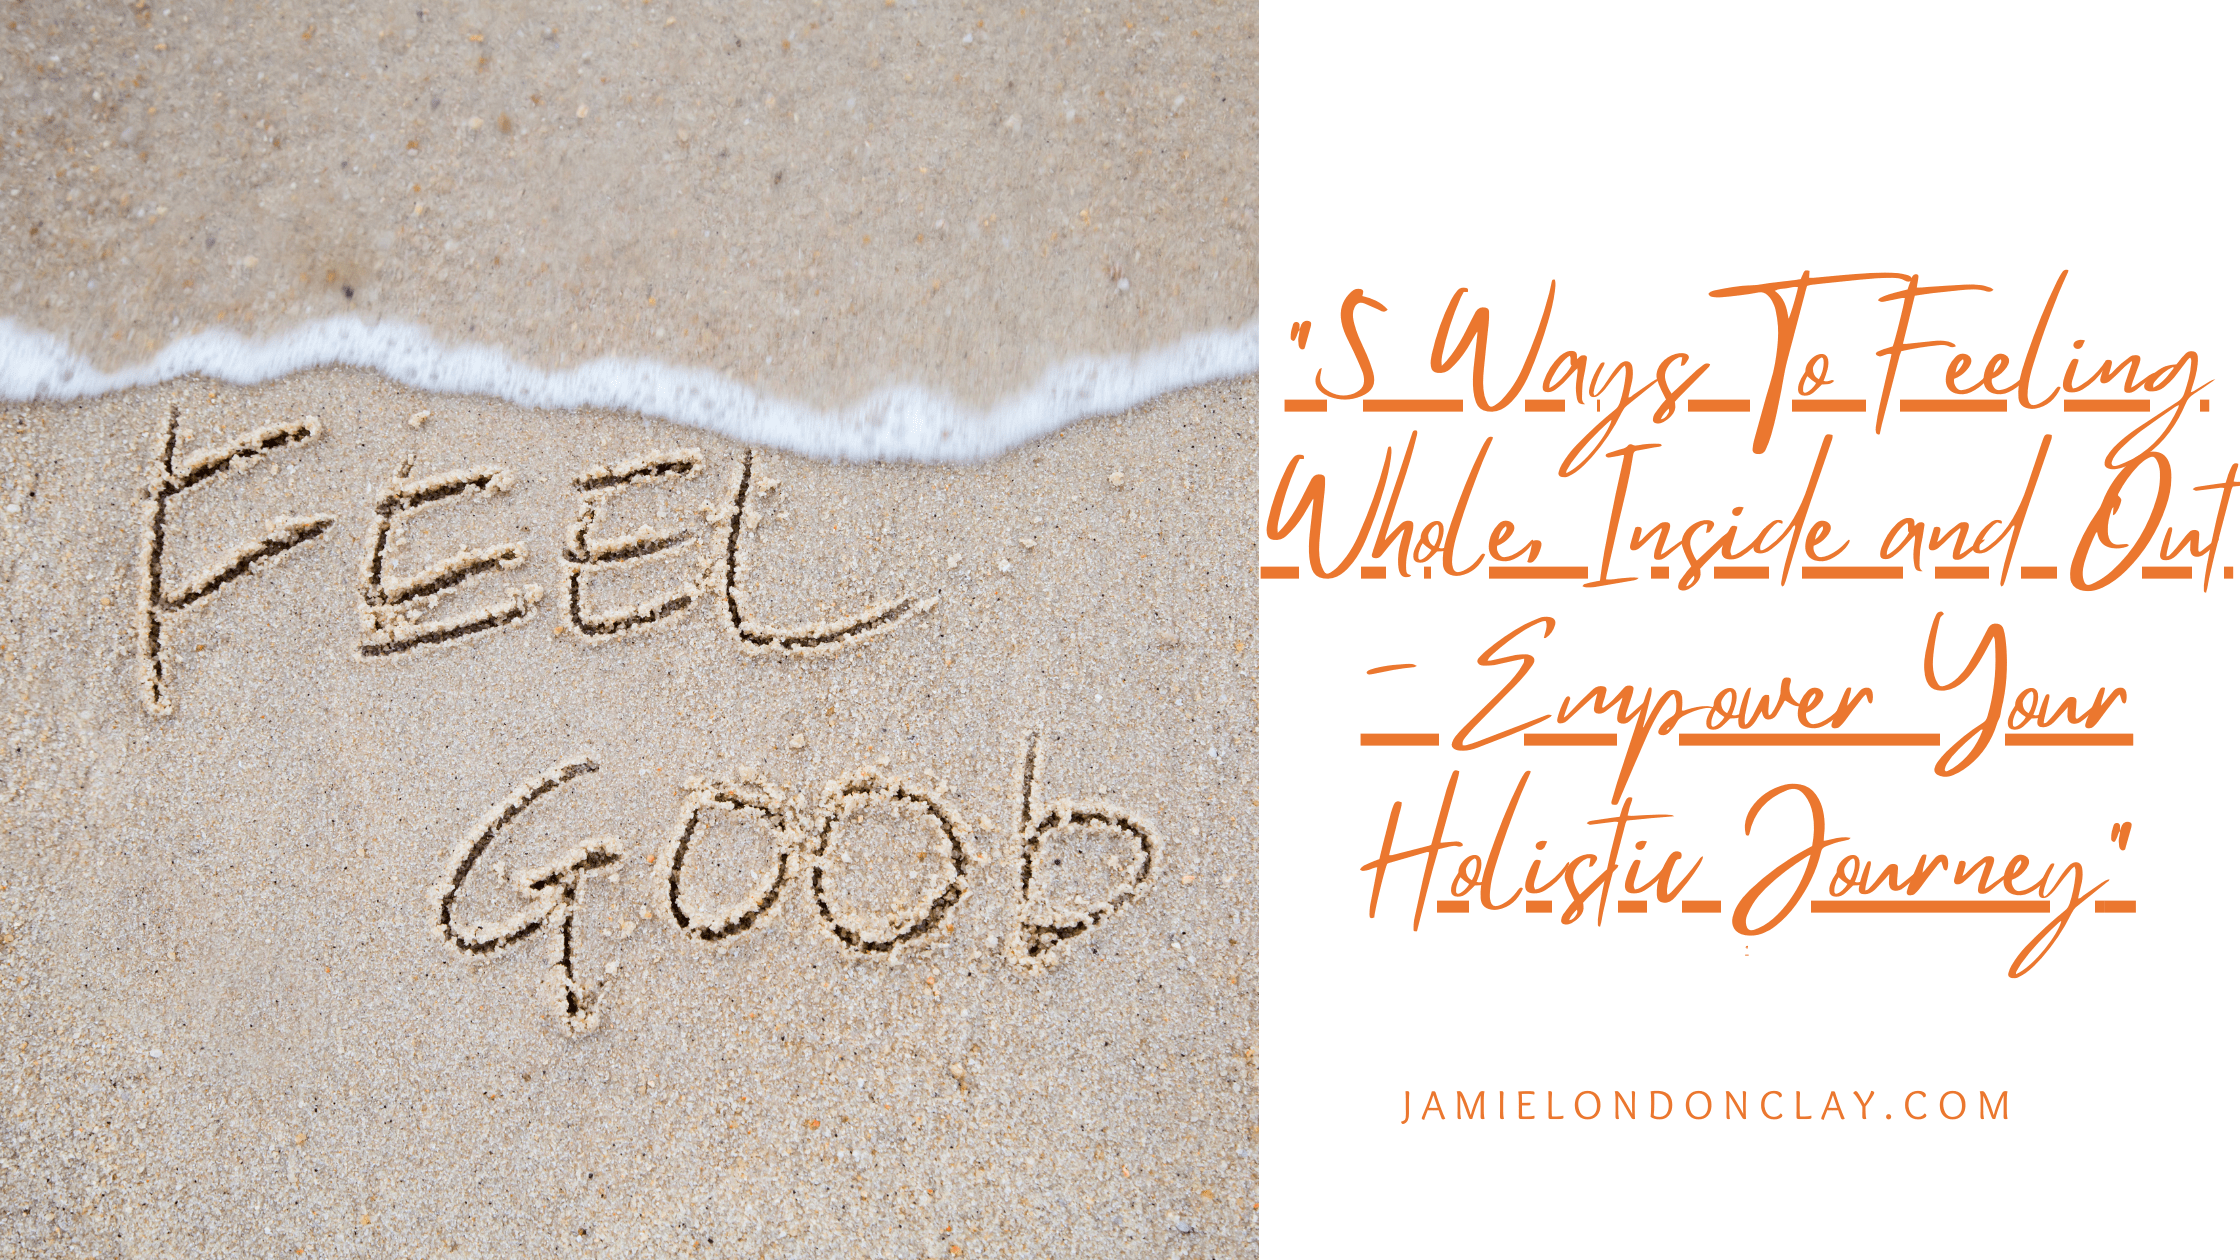 FEEL
GOOD
"5 Ways To Feeling
Whole, Inside and Out
- Empower Your
Holistic Journey"
JAMIELONDONCLAY.COM